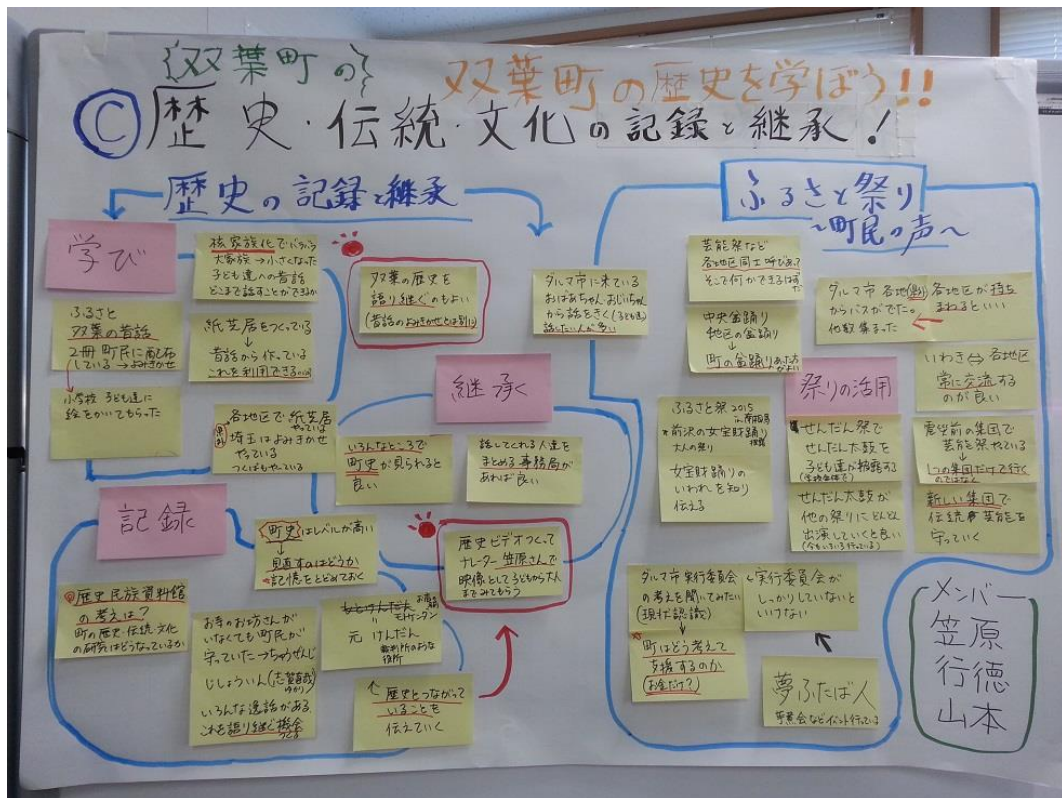 {双葉町の}
双葉町の歴史を学ぼう!!
Ⓒ歴史・伝統・文化の記録と継承!
歴史の記録と継承
学び
核家族化でバラバラ
大家族→小さくなった
子ども達への昔話
どこまで話すことができるか
ふるさと
双葉の昔話
2冊 町民に配布
している→よみきかせ
小学校 子ども達に
絵をかいてもらった
紙芝居をつくっている
↓
昔話から作っている
これを利用できるのでは
各地区で紙芝居
やっている
埼玉はよみきかせ
やっている
つくばもやっている
双葉の歴史を
語り継ぐのもよい
(昔話のよみきかせとは別に)
ダルマ市に来ている
おばあちゃん・おじいちゃん
から話をきく(子ども達)
話したい人が多い
継承く
いろんなところで
町史が見られると
良い
話してくれる人達を
まとめる事務局が
あれば良い
記録
町史はレベルが高い
↓
見直すのはどうか
記憶をとどめておく
歴史ビデオつくって
ナレーター笠原さんで
映像として子どもから大人
までみてもらう
歴史民族資料館
の考えは?
町の歴史・伝統・文化
の研究はどうなっているか
お寺のお坊さんが
いなくても町民が
守っていた→ちゅうぜんじ
じしょういん
いろんな逸話がある
これを語り継ぐ機会
つくる
元 けんだん
裁判所のような
役所
↑歴史とつながって
いることを
伝えていく
ふるさと祭り
~町民の声~
芸能祭など
各地区同士呼びあって
そこで何かできるはずだ
中央盆踊り
地区の盆踊り
↓
町の盆踊りあった方
がよい
ダルマ市 各地(県外)
からバスがでた。
他数集まった
各地区が持ち
まわるといい
いわき⇔各地区
常に交流する
のが良い
祭りの活用
ふるさと祭2015
前沢の女宝財踊り
大人の祭り
女宝財踊りの
いわれを知り
伝える
せんだん祭で
せんだん太鼓を
子ども達が披露する
せんだん太鼓が
他の祭りにどんどん
出演していくと良い
(今もいろいろ行っている)
震災前の集団で
芸能祭やっている
↓
1つの集団だけで行く
のではなく
新しい集団で
伝統芸能を
守っていく
ダルマ市実行委員会
の考えを聞いてみたい
(現状認識)
↓
町はどう考えて
支援するのか
(お金だけ?)
実行委員会が
しっかりしていないと
いけない
夢ふたば人
芋煮会などイベント行っている
メンバー
笠原
行徳
山本